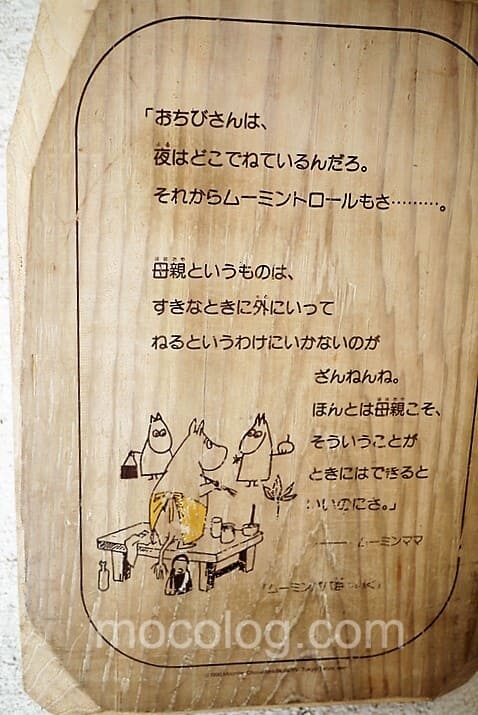 「おちびさんは、
夜はどこでねているんだろ。
それからムーミントロールもさ………。
母親というものは、
すきなときに外にいって
ねるというわけにいかないのが
ざんねんね。
ほんとは母親こそ、
そういうことが
ときにはできると
いいのにさ。」
――― ムーミンママ
mocolog.com